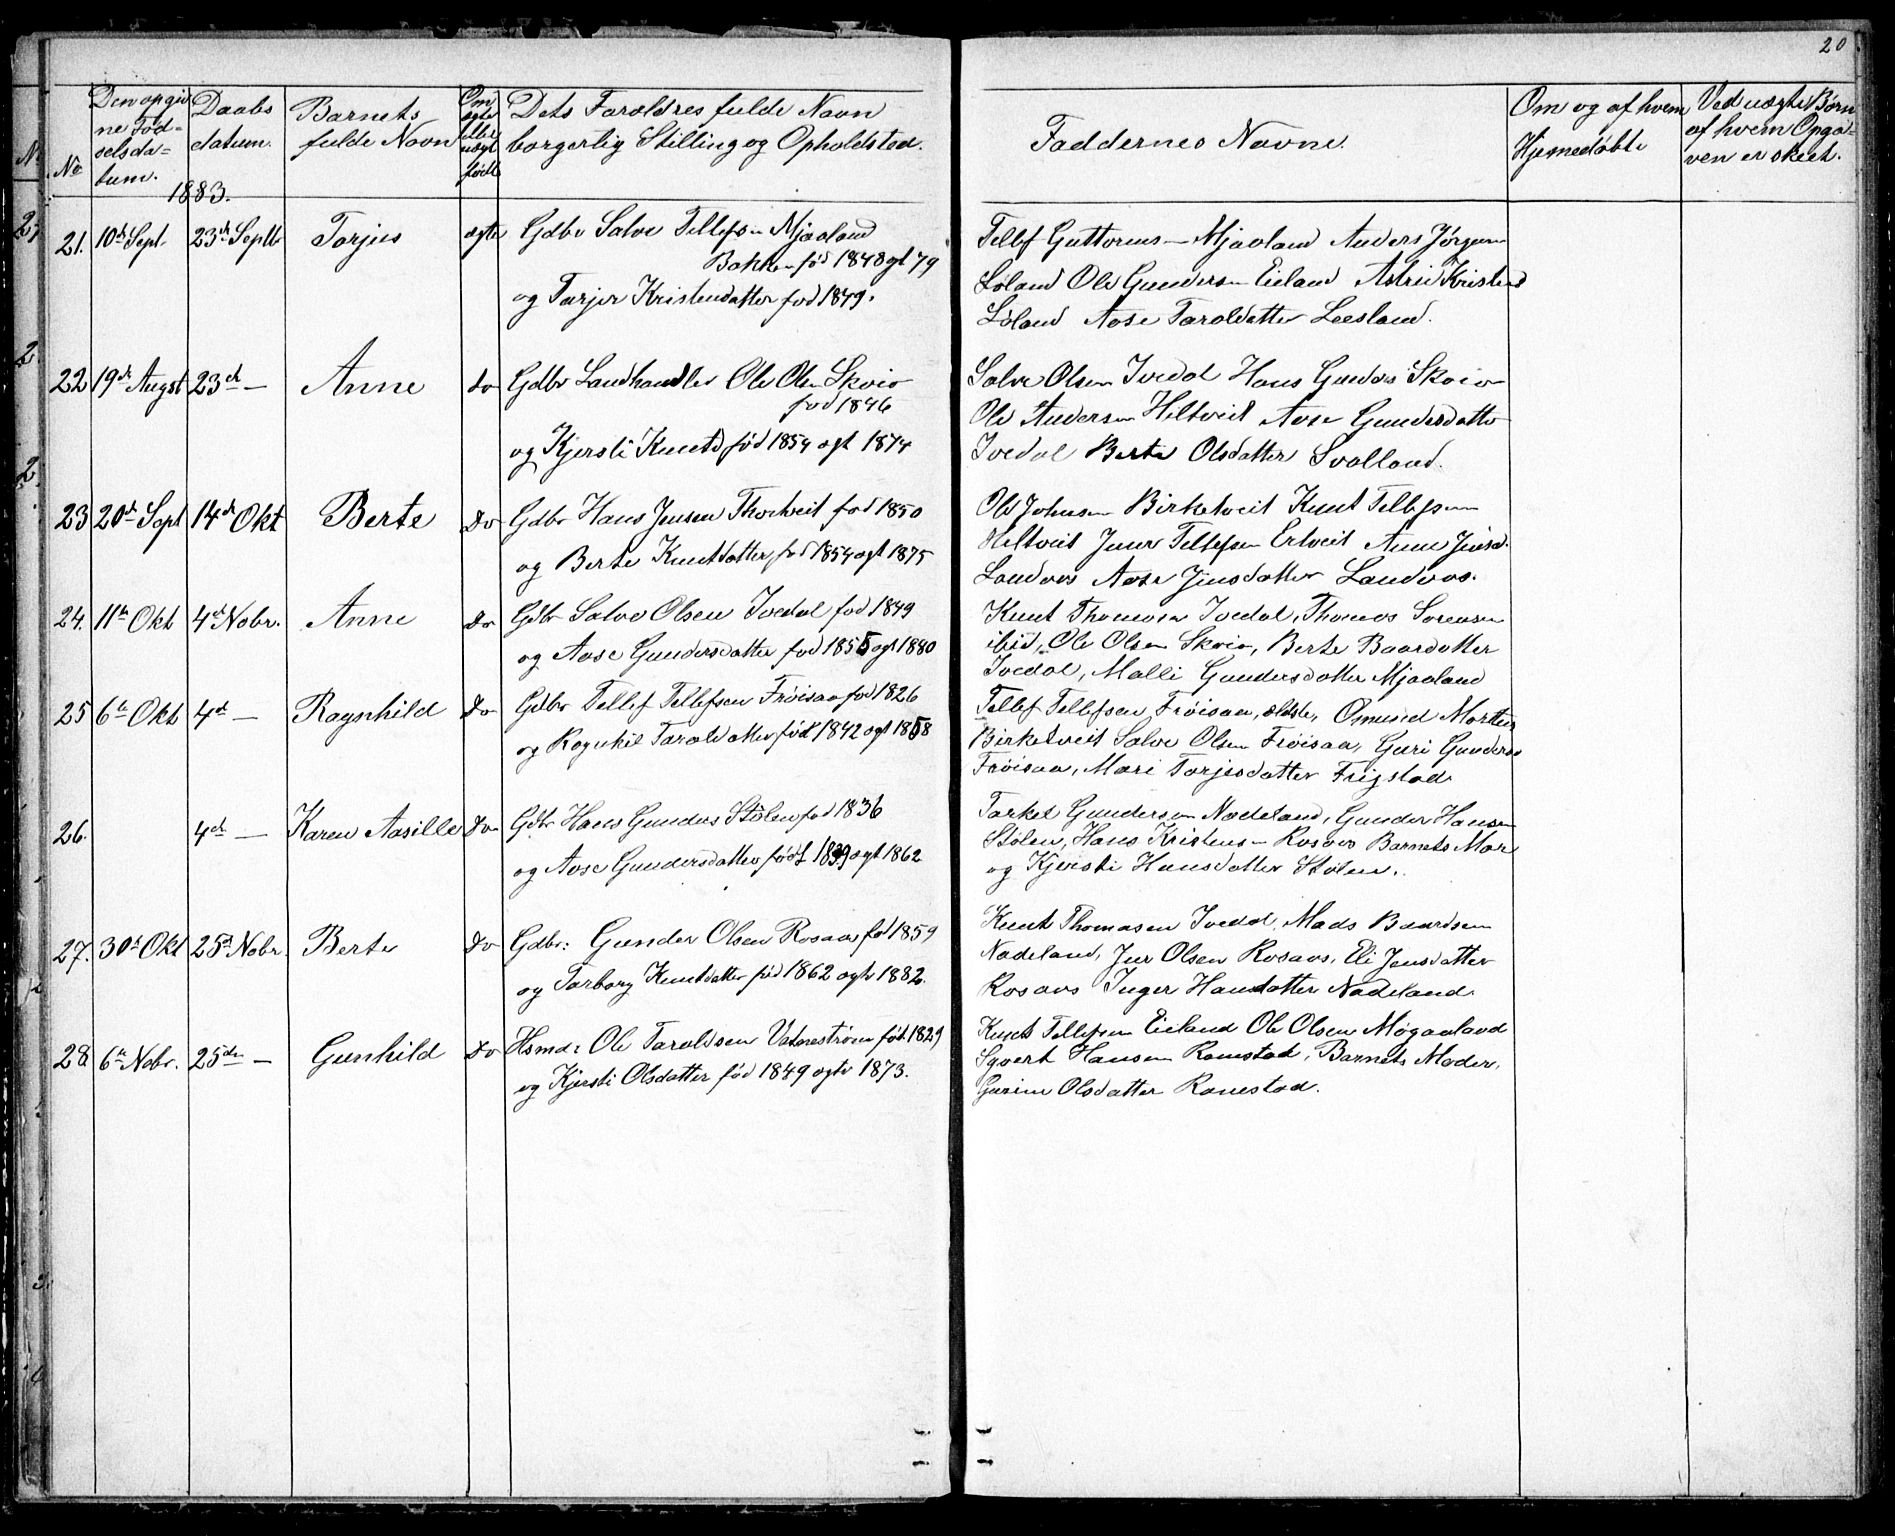 20
No
Den opgiv
ne Fød=
selsda=
tum.
Daabs
datum.
Barnets
fulde Navn
Om
ægte
eller
uægt
født
Dets Forældres fulde Navn
borgerlig Stilling og Opholdsted.
Faddernes Navne.
Om og af hvem
Hjemmedøbt
Ved uægte Børn
af hvem Opga=
ven er skeet.
1883.
21. 10de Sept. 23de Septbr Torjus ægte Gdbr Salve Tellefsen Mjaaland
Bakken fød 1848 gt 79
og Tarjer Kristensdatter fød 1849.
Tellef Guttormsen Mjaaland Anders Jørgensen
Løland Ole Gundersen Eieland Astrid Kristensd
Løland Aase Taraldatter Leesland.
22 19de Augst 23de — Anne do Gdbr Landhandler Ole Olsen Skeie
fød 1846
og Kjersti Knutsd fød 1854 ogt 1874
Salve Olsen Ivedal Hans Gunders Skeie
Ole Andersen Heltveit Aase Gundersdatter
Ivedal Berte Olsdatter Svalland.
23 20de Sept 14de Okt Berte Do Gdbr Hans Jensen Thortveit fød 1850
og Berte Knutdatter fød 1854 ogt 1875
Ole Johnsen Birketveit Knut Tellefsen
Heltveit Jens Tellefsen Ertveit Anne Jensd.
Landaas Aase Jensdatter Landaas.
24. 11te Okt 4de Nobr. Anne Do Gdbr Salve Olsen Ivedal fød 1849
og Aase Gundersdatter fød 1855 ogt 1880
Knut Thomasen Ivedal, Thomas Sorensen
ibid, Ole Olsen Skeie, Berte Baardatter
Ivedal, Malli Gundersdatter Mjaaland
25 6te Okt 4de — Ragnhild Do Gdbr Tellef Tellefsen Frøisaa fød 1826
og Ragnhil Taraldatter, fød 1842 ogt 1858
Tellef Tellefsen Frøisaa, ældste, Osmund Mortens
Birketveit Salve Olsen Frøisaa, Guri Gundersd
Frøisaa, Mari Torjusdatter Frigstad
26. 4de — Karen Aasille Do Gdbr Hans Gunders Stølen fød 1836
og Aase Gundersdatter født 1839 ogt 1862
Tarkel Gundersen Nadeland, Gunder Hansen
Stølen, Hans Kristens— Rosaas Barnets Mor
og Kjersti Hansdatter Stølen.
27. 30te Okt 25de Nobr. Berte Do Gdbr: Gunder Olsen Rosaas fød 1859
og Tarborg Knutdatter fød 1862 ogtv 1882.
Knut Thomasen Ivedal, Mads Baardsen
Nadeland, Jens Olsen Rosaas, Eli Jensdatter
Rosaas Inger Hansdatter Nadeland.
28 6te Nobr. 25de — Gunhild Do Hsmd: Ole Taraldsen Vatnestrøm født 1829
og Kjersti Olsdatter fød 1849 ogtv 1873.
Knut Tellefsen Eieland Ole Olsen Møgaaland
Sqvert Hansen Ramestad, Barnets Moder,
Gurine Olsdatter Ramestad.